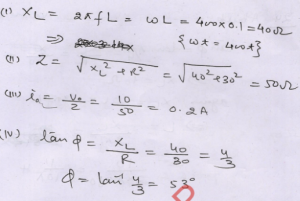 (I) XL = 2πfL = ωL = 400×0.1 = 40Ω
⇒ {ωt = 400t}
(II) Z = √(XL² + R²) = √(40²+30²) = 50Ω
(III) io = Vo/Z = 10/50 = 0.2A
(IV) tanφ = XL/R = 40/30 = 4/3
φ = tan⁻¹ 4/3 = 53°